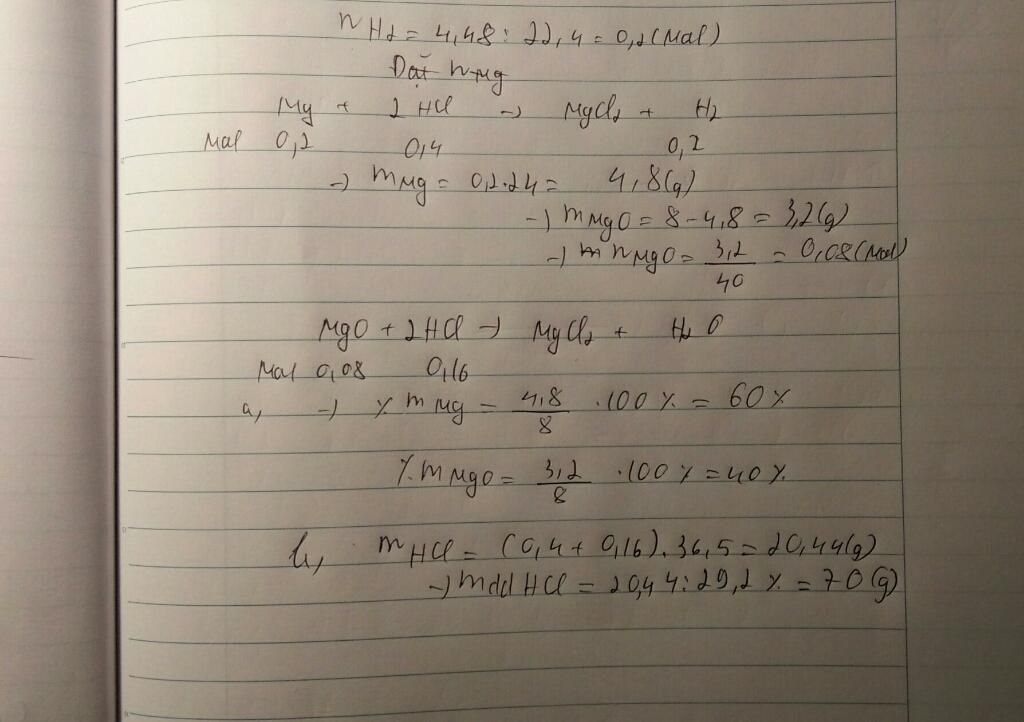 nH2 = 4,48 : 22,4 = 0,2 (mol)
Đặt nMg
Mg + 2 HCl -> MgCl2 + H2
Mol 0,2 0,4 0,2
-> mMg = 0,2.24 = 4,8(g)
-> mMgO = 8-4,8 = 3,2(g)
-> m nMgO = 3,2/40 = 0,08 (mol)
MgO + 2HCl -> MgCl2 + H2O
Mol 0,08 0,16
a, -> % m Mg = 4,8/8 .100 % = 60 %
% m MgO = 3,2/8 .100 % = 40 %
b, mHCl = (0,4 + 0,16). 36,5 = 20,44(g)
-> mdd HCl = 20,44 : 29,2 % = 70 (g)